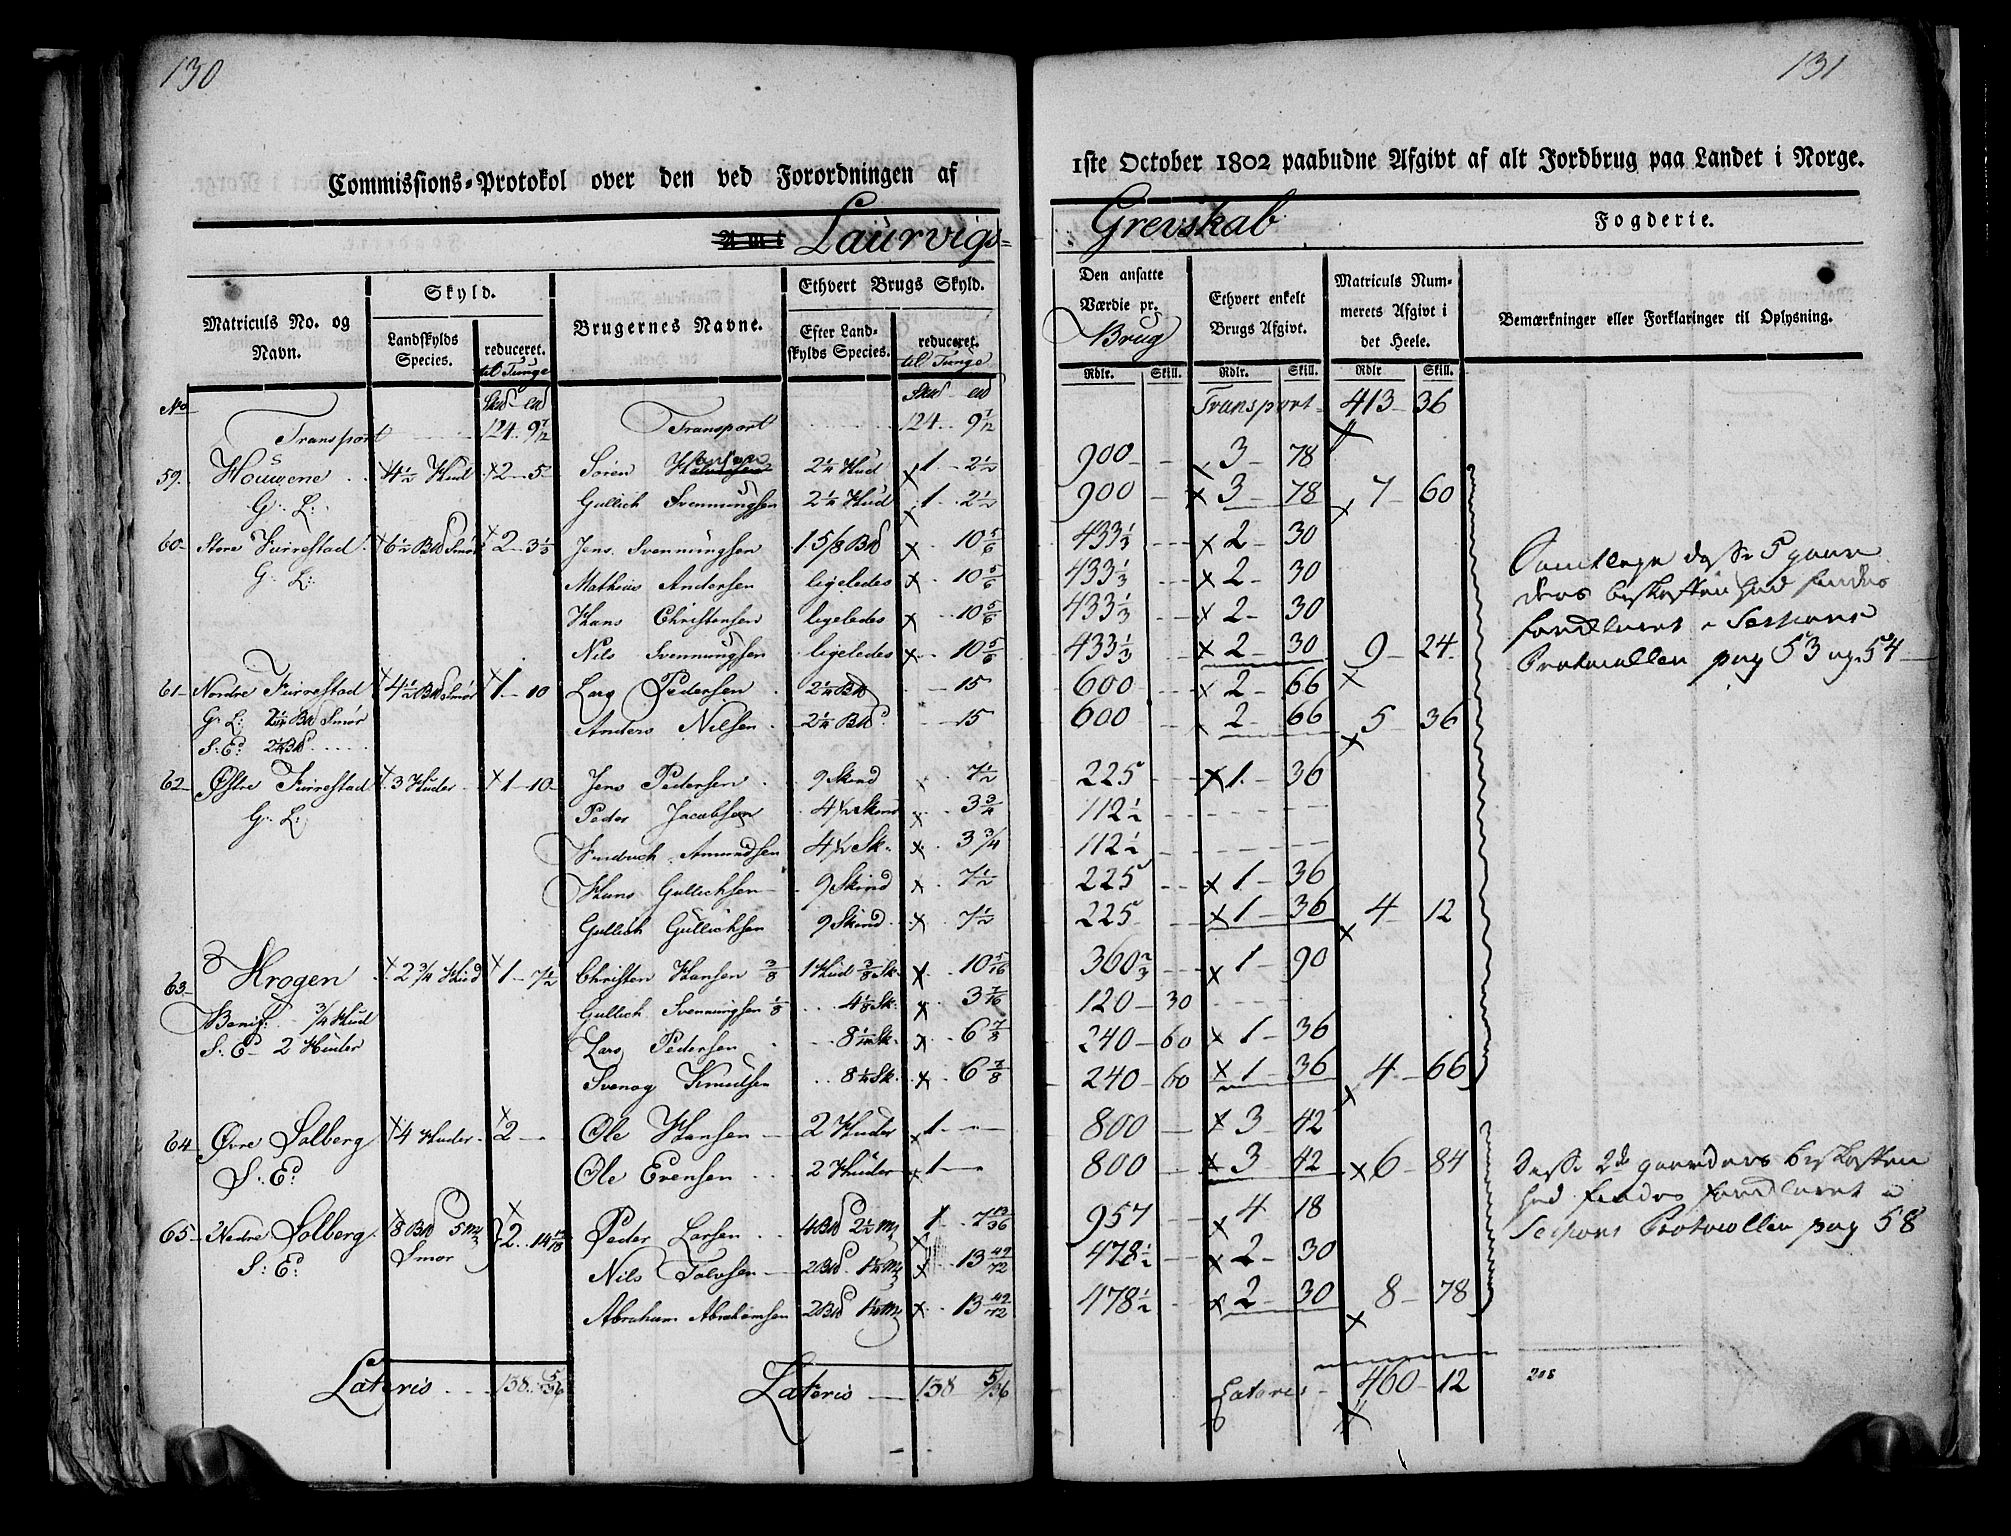 130
Commissions-Protokol over den ved Forordningen af
Amt Laurvigs=
Matriculs No. og Navn.
Skyld.
Landskylds Species.
reduceret. til Tunge
Brugernes Navne.
Ethvert Brugs Skyld.
Efter Landskylds Species.
reduceret. til Tunge
No
Transport 124 9 7/12 Transport 124 9 7/12
59. Houwene 4 1/2 Hud 2 5 Sören 2 1/4 Hud 1 2 1/2
G: L: Gullich Svennungsen 2 1/4 Hud 1 2 1/2
60 Store Furrestad 6 1/2 Bd Smör 2 3 1/3 Jens Svennungsen 1 5/8 Bd 10 5/6
G: L: Mathias Andersen ligeledes 10 5/6
Hans Christensen ligeledes 10 5/6
Nils Svennungsen ligeledes 10 5/6
61 Nordre Furrestad 4 1/2 Bd Smör 1 10 Lars Pedersen 2 1/4 Bd 15
G: L: 2 1/4 Bd Smör Anders Nilsen 2 1/4 Bd 15
S: E: 2 1/4 Bd
62 Østre Furrestad 3 Huder 1 10 Jens Pedersen 9 Skind 7 1/2
G: L: Peder Jacobsen 4 1/2 Skind 3 3/4
Amundsen 4 1/2 Sk. 3 3/4
Hans Gullichsen 9 Skind 7 1/2
Gullich Gullichsen 9 Skind 7 1/2
63 Krogen 2 3/4 Hud 1 7 1/2 Christen Hansen 3/8 1 Hud 3/8 Sk. 10 5/16
Benif: 3/4 Hud Gullich Svennungsen 1/8 4 1/8 Sk. 3 7/16
S: E 2 Huder Lars Pedersen 8 1/4 Sk. 6 7/8
Svenog Knudsen 8 1/4 Sk. 6 7/8
64 Øvre Solberg 4 Huder 2 Ole Hansen 2 Huder 1
S: E: Ole Evensen 2 Huder 1
65 Nedre Solberg 8 Bd 5 Mk Smör 2 14 Peder Larsen 4 Bd 2 1/2 Mk 1 7 13/36
S: E: Nils Talvsen 2 Bd 1 1/4 Mk 13 49/72
Abraham Abrahamsen 2 Bd 1 1/4 Mk 13 49/72
Lateris 138 5/36 Lateris 138 5/36
131
1ste October 1802 paabudne Afgivt af alt Jordbrug paa Landet i Norge.
Grevskab Fogderie.
Den ansatte Værdie pr. Brug
Ethvert enkelt Brugs Afgivt.
Matriculs Nummerets Afgivt i det Heele.
Bemærkninger eller Forklaringer til Oplysning.
Rdlr. Skill. Rdlr. Skill. Rdlr Skill.
Transport 413 36
900 3 78
900 3 78 7 60
433 1/3 2 30
433 1/3 2 30
433 1/3 2 30
433 1/3 2 30 9 24
600 2 66
600 2 66 5 36
225 1 36
112 1/2
112 1/2
225 1 36
225 1 36 4 12
360 2/3 1 90
120 30
240 60 1 36
240 60 1 36 4 66
800 3 42
800 3 42 6 84
957 4 18
478 1/2 2 30
478 1/2 2 30 8 78
Lateris 460 12
Samtlege disse 5 gaarders beskaffenhed findes forklaret i Sessions Protocollen pag 53 og 54
Disse 2de gaarders beskaffenhed findes forklaret i Sessions Protocollen pag 58
208